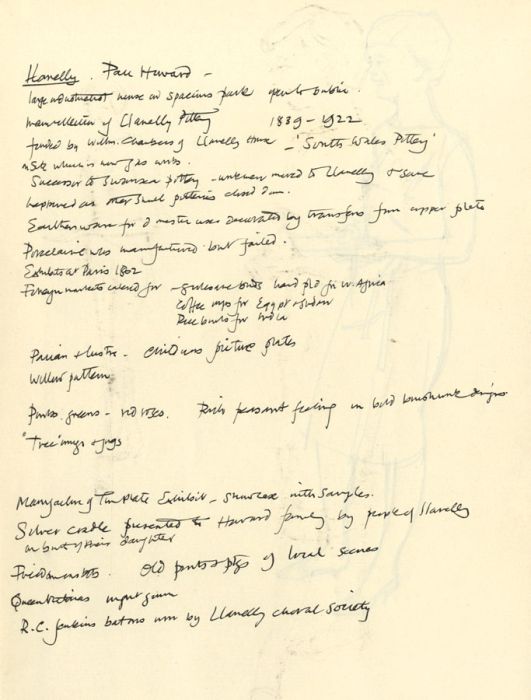 Llanelly. Parc Howard –
large house in spacious park open to public.
main collection of Llanelly Pottery 1839 – 1922
founded by Willm. Chambers of Llanelly House – 'South Wales Pottery'
in site which is now gas works.
Successor to Swansea pottery – workmen moved to Llanelly & same
happened as other small potteries closed down.
Earthenware for domestic uses decorated by transfers from copper plate
Porcelain was manufactured but failed.
Exhibits at Paris 1862
Foreign markets catered for – birds hand ptd for W. Africa
Coffee cups for Egypt & Sudan
Rice bowls for India
Parian & lustre. Childrens picture plates
Willow pattern
Pinks, greens – red roses. Rich peasant feeling in bold brushwork designs
"Tree" mugs & jugs
Manufacture of Tin plate Exhibit – showcase with samples.
Silver cradle presented to Howard family by people of Llanelly
on birth of their daughter
Old prints & ptgs of local scenes
Queen Victorias
R.C. Jenkins batons won by Llanelly choral Society